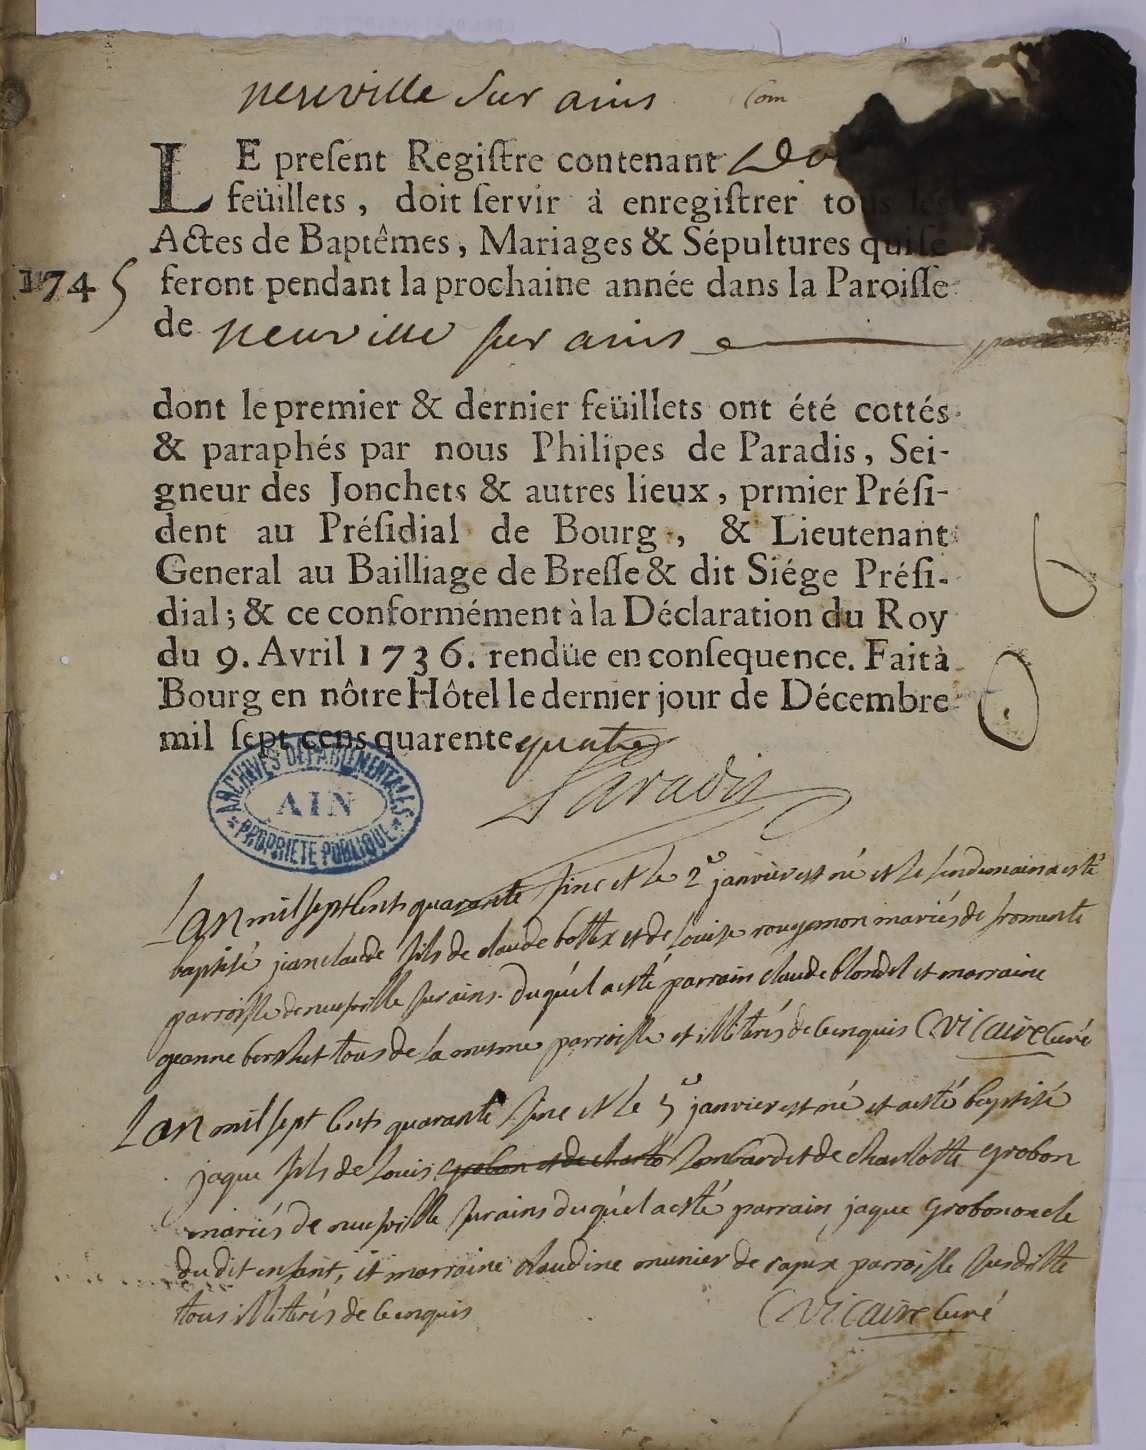 neuville sur ains com
LE preſent Regiſtre contenant Do
feüillets, doit ſervir à enregiſtrer tous les
Actes de Baptêmes, Mariages & Sépultures qui ſe
1745 feront pendant la prochaine année dans la Paroiſſe
de neuville sur ains
dont le premier & dernier feüillets ont été cottés
& paraphés par nous Philipes de Paradis, Sei-
gneur des Jonchets & autres lieux, prmier Préſi-
dent au Préſidial de Bourg, & Lieutenant
General au Bailliage de Breſſe & dit Siége Préſi-
dial; & ce conformément à la Déclaration du Roy
du 9. Avril 1736. rendüe en conſequence. Fait à
Bourg en nôtre Hôtel le dernier jour de Décembre
mil ſept cens quarente quatre
Paradis
ARCHIVES DEPARTEMENTALES
AIN
* PROPRIETE PUBLIQUE *
Lan mil sept cents quarante sinc et le 2e janvier est né et le lendemain a esté
baptisé jean claude fils de claude bottex et de Louise rougemon mariés de fromente
parroisse de neufville sur ains duquél a esté parrain claude blondel et marraine
geanne tous de la mesme parroisse et illiterés de ce enquis C Vicaire Curé
Lan mil sept cents quarante sinc et le 5e janvier est né et a esté baptisé
jaque fils de Louis grobon et de charlo Lombard et de charlotte grobon
mariés de neufville sur ains duquél a esté parrain jaque grobon oncle
du dit enfant, et marraine claudine munier de parroisse susditte
tous illiterés de ce enquis C Vicaire Curé